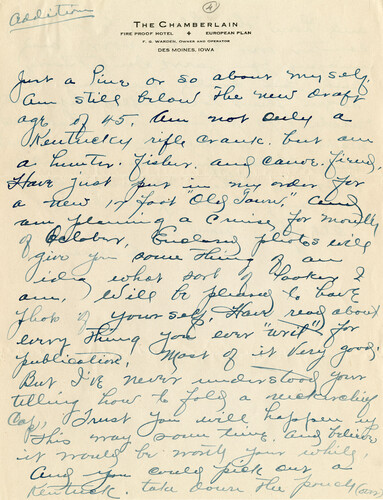 Addition
4
THE CHAMBERLAIN
FIRE PROOF HOTEL + EUROPEAN PLAN
F. S. WARDEN, OWNER AND OPERATOR
DES MOINES, IOWA
Just a line or so about myself.
Am still below the new draft
age of 45. Am not only a
Kentucky rifle crank. but am
a hunter. fisher. and canoe. fiend.
Have just put in my order for
a new 17 foot "Old Town", and
am planing a cruise for month
of October, Enclosed photos will
give you some thing of an
idea what sort of looker I
am, Will be pleased to have
photo of yourself, Have read about
every thing you ever "writ" for
publication, Most of it very good.
But I've never understood your
telling how to fold a neckerchief
Cap, Trust you will happen up
this way some time. and believe
it would be worth your while,
And you could pick out a
Kentuck. take down the pouch (over)